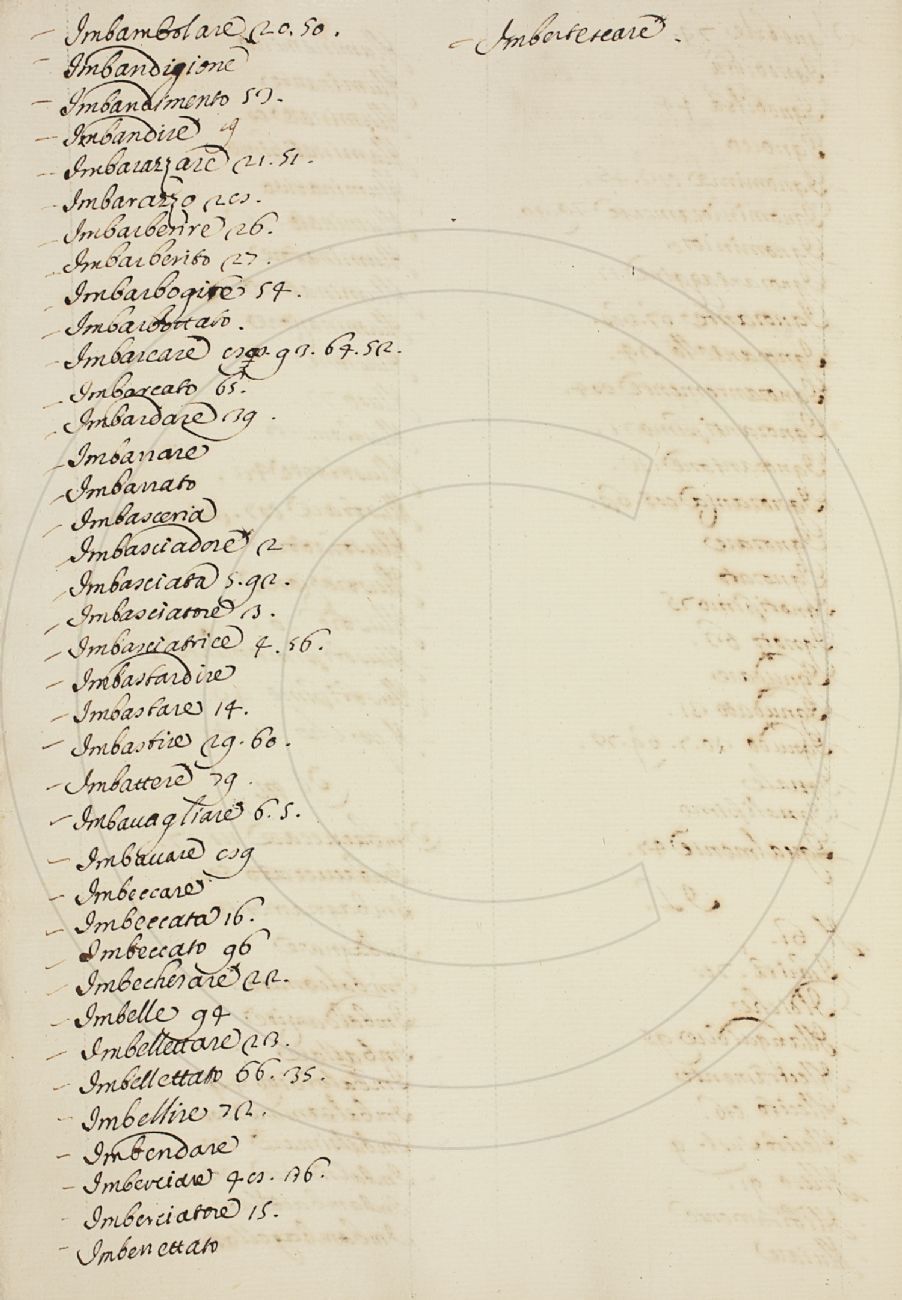 – Imbambolare 20. 50.
– Imbandigione
– Imbandimento 59.
– Imbandire 19
– Imbarazzare 21. 51.
– Imbarazzo
– Imbarberire 26.
– Imbarberito 27.
– Imbarbogire 54.
– Imbarbottato.
– Imbarcare 93. 64. 52.
– Imbarcato 65.
– Imbardare 39.
– Imbarrare
– Imbarrato
– Imbasceria
Imbasciadore 2
– Imbasciata 5. 92.
– Imbasciatore 3.
– Imbasciatrice 4. 56.
– Imbastardire
– Imbastare 14.
– Imbastire 29. 60.
– Imbattere 79.
– Imbavagliare 6. 5.
– Imbavare
– Imbeccare
– Imbeccata 16.
– Imbeccato 96
– Imbecherare 22.
– Imbelle 94
– Imbellettare 23.
– Imbellettato 66. 35.
– Imbellire 72.
– Imbendare
– Imberciare 36.
– Imberciatore 15.
– Imberrettato
– Imbertescare.